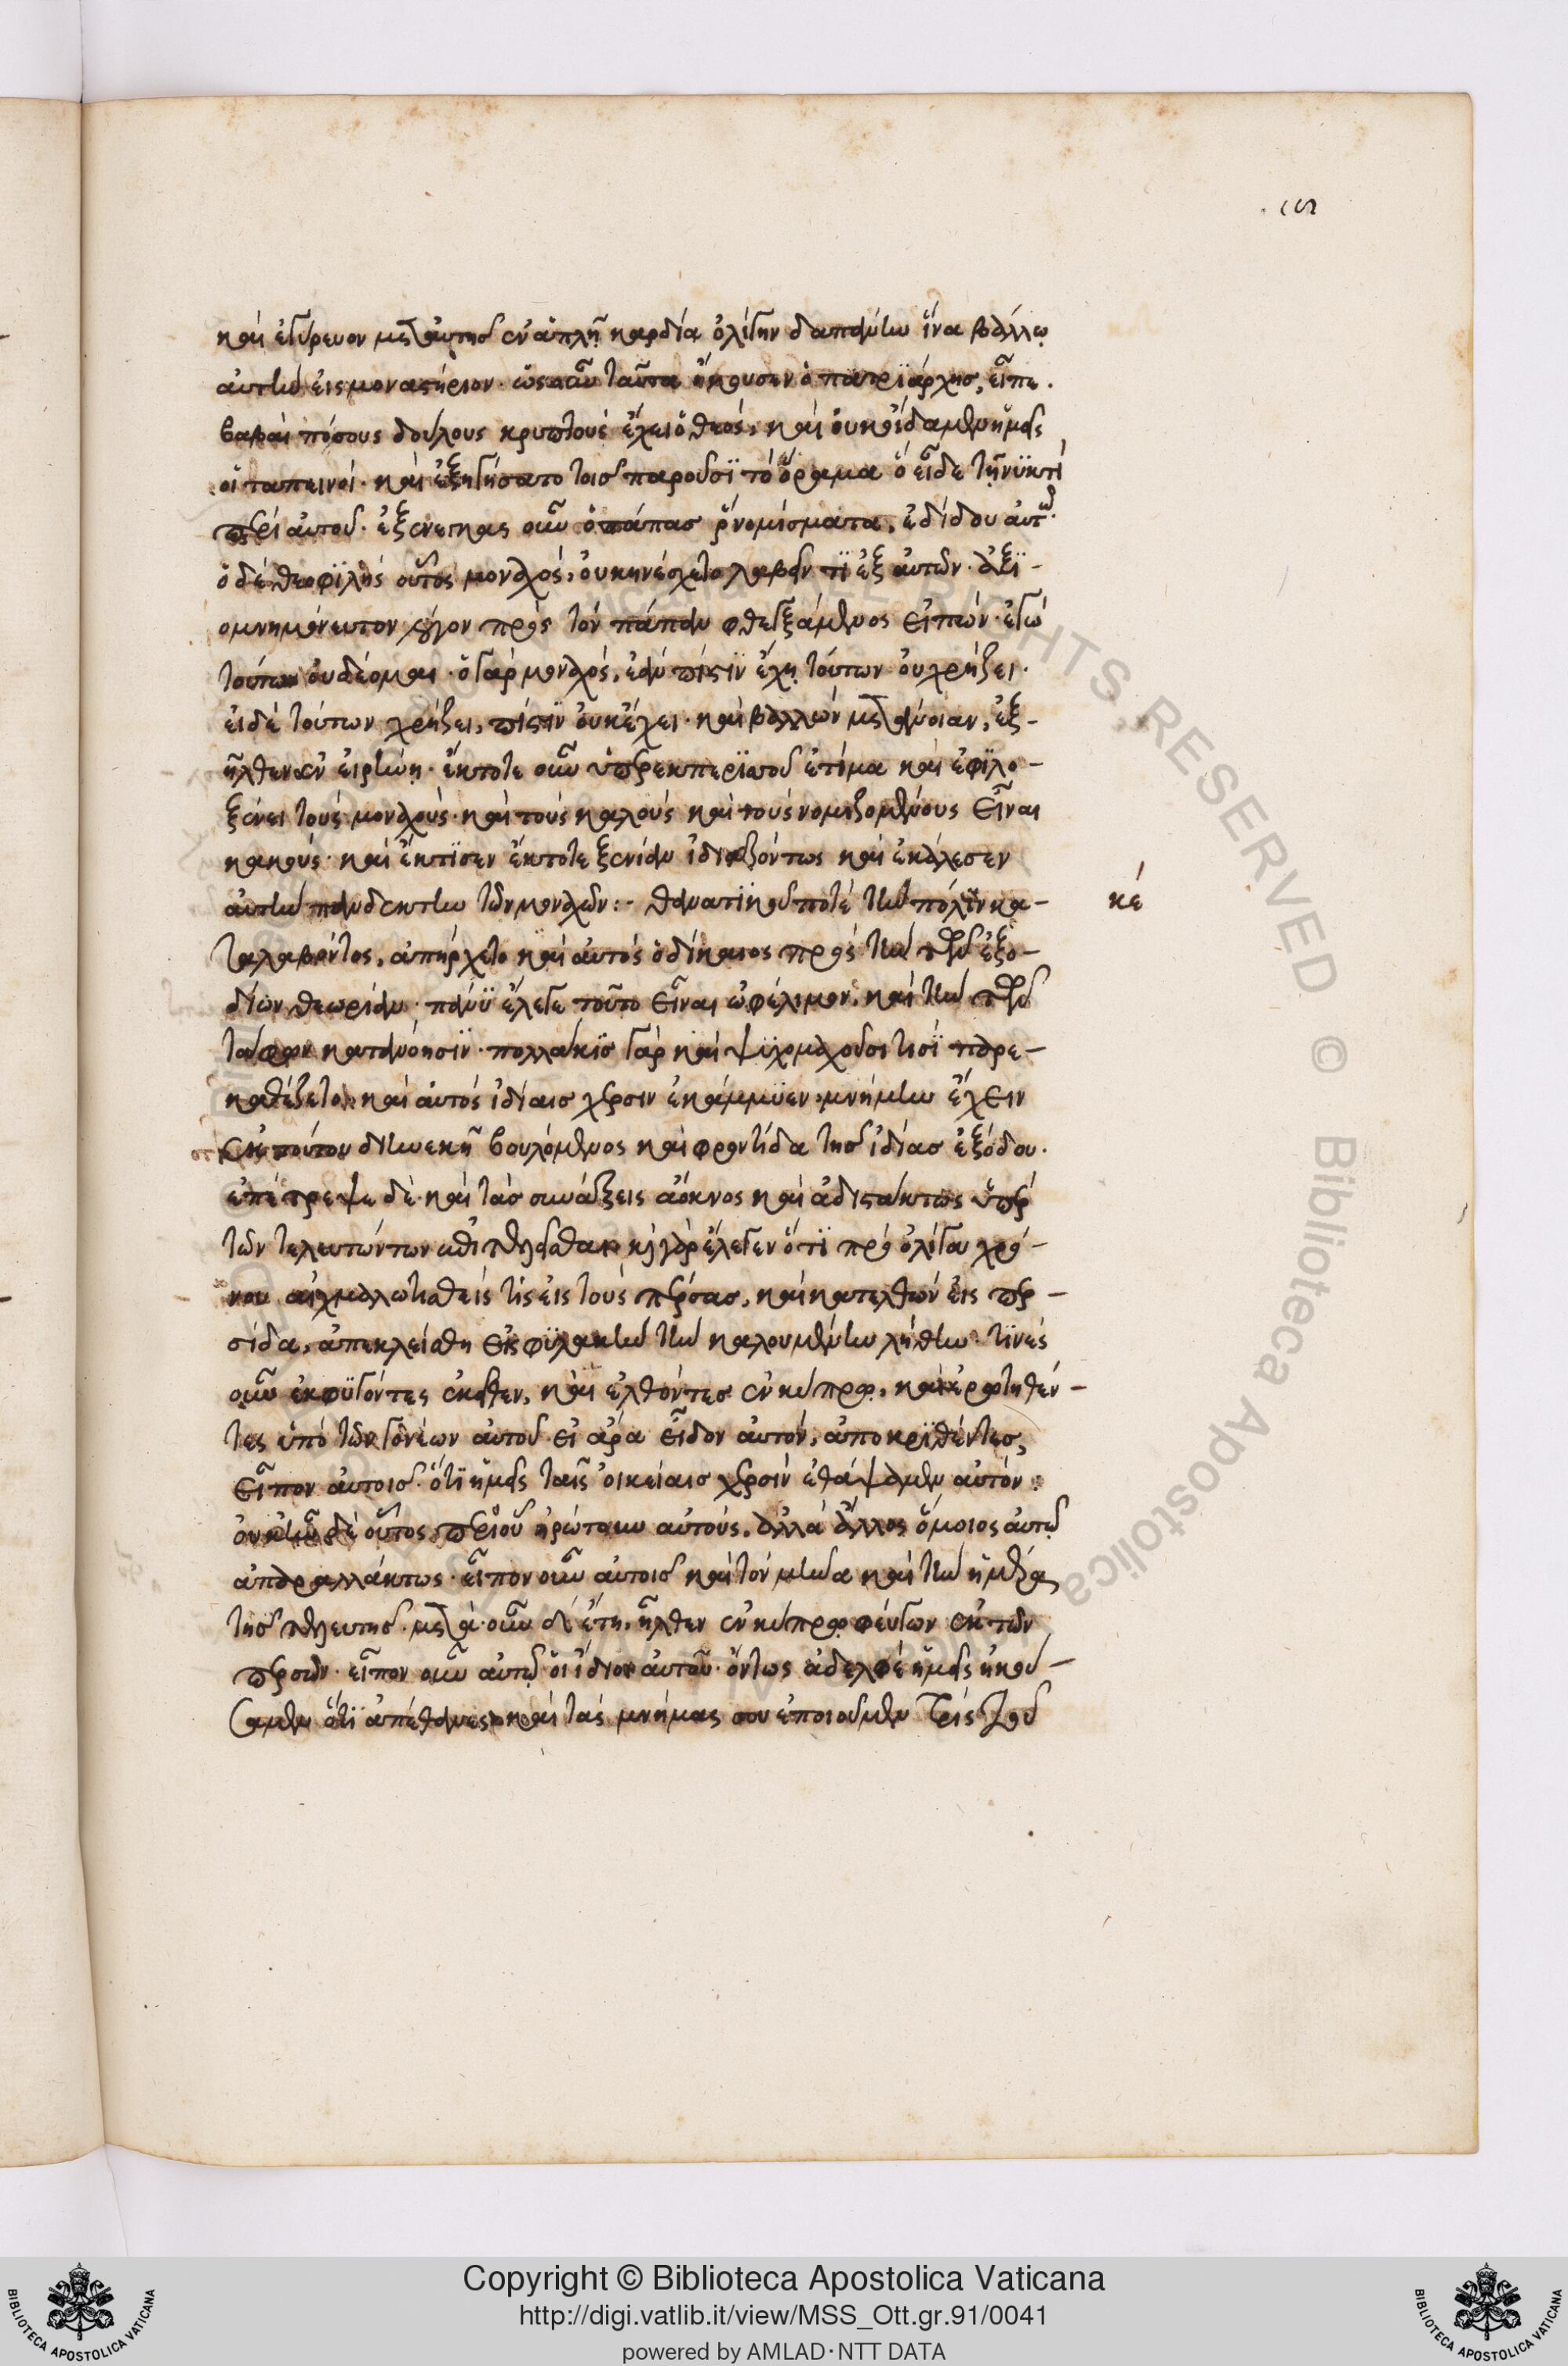 ις
καὶ ἐγύρευον μετ' αὐτῆς ἐν ἁπλῇ καρδίᾳ ὀλίγην δαπάνην ἵνα βάλλω
αὐτὴν εἰς μοναστήριον· ὡς οὖν ταῦτα ἤκουσεν ὁ πατριάρχης, εἶπε·
βαβαὶ πόσους δούλους κρυπτοὺς ἔχει ὁ θεός, καὶ οὐκ οἴδαμεν ἡμεῖς
οἱ ταπεινοί· καὶ ἐξηγήσατο τοῖς παροῦσϊ τὸ ὅραμα ὃ εἶδε τῇ νϋκτὶ
περὶ αὐτοῦ· ἐξενεγκας οὖν ὁ πάπας ρ νομίσματα, ἐδίδου αὐτῷ·
ὁ δὲ θεοφϊλὴς οὗτος μοναχός, οὐκ ἠνέσχετο λαβεῖν τϊ ἐξ αὐτῶν· ἀξϊ-
ομνημόνευτον λόγον πρὸς τὸν πάπαν φθεγξάμενος εἰπών· ἐγὼ
τούτων οὐ δέομαι· ὁ γὰρ μοναχός, ἐὰν πίστϊν ἔχῃ τούτων οὐ χρήζει·
εἰ δὲ τούτων χρήζει, πίστϊν οὐκ ἔχει· καὶ βαλλὼν μετάνοιαν, ἐξ-
ῆλθεν ἐν εἰρήνῃ· ἔκτοτε οὖν ὑπερεκπερϊσσοῦ ἐτίμα καὶ ἐφϊλο-
ξένει τοὺς μοναχοὺς· καὶ τοὺς καλοὺς καὶ τοὺς νομιζομένους εἶναι
κακούς· καὶ ἔκτϊσεν ἔκτοτε ξενίαν ἰδιαζόντως καὶ ἐκάλεσεν
αὐτὴν πανδέκτην τῶν μοναχῶν:- θανατικοῦ ποτὲ τὴν πόλϊν κα-
κε
ταλαβόντος, ἀπήρχετο καὶ αὐτὸς ὁ δίκαιος πρὸς τὴν τῶν ἐξο-
δίων θεωρίαν· πάνϋ ἔλεγε τοῦτο εἶναι ὠφέλιμον, καὶ τὴν τῶν
τάφων κατανόησϊν· πολλάκϊς γὰρ καὶ ψϋχομαχοῦσι τισϊ παρε-
καθέζετο, καὶ αὐτὸς ἰδίαις χερσιν ἐκάμμϋεν, μνήμην ἔχειν
ἐκ τούτου διηνεκῆ βουλόμενος καὶ φροντίδα τῆς ἰδίας ἐξόδου·
ἐπέτρεψε δὲ καὶ τὰς συνάξεις ἀόκνος καὶ ἀδιστάκτως ὑπὲρ
τῶν τελευτώντων ἐπιτελεῖσθαι· καὶ γὰρ ἔλεγεν ὅτϊ πρὸ ὀλίγου χρό-
νου αἰχμαλωτισθείς τις εἰς τοὺς πέρσας, καὶ κατελθὼν εἰς περ-
σίδα, ἀπεκλείσθη εἰς φϋλακὴν τὴν καλουμένην λήθην· τϊνὲς
οὖν ἐκφϋγόντες ἐκεῖθεν, καὶ ἐλθόντες ἐν κύπρῳ, καὶ ἐρωτηθέν-
τες ὑπὸ τῶν γονέων αὐτοῦ εἰ ἄρα εἶδον αὐτόν, ἀποκρϊθέντες,
εἶπον αὐτοῖς· ὅτϊ ἡμεῖς ταῖς οἰκείαις χερσὶν ἐθάψαμεν αὐτόν·
οὐκ ἦν δὲ οὗτος περὶ οὗ ἠρώτων αὐτούς, ἀλλὰ ἄλλος ὅμοιος αὐτῷ
ἀπαραλλάκτως· εἶπον οὖν αὐτοῖς καὶ τὸν μῆνα καὶ τὴν ἡμέρα
τῆς τελευτῆς· μετὰ οὖν δ' ἔτη, ἦλθεν ἐν κύπρῳ φεύγων ἐκ τῶν
περσῶν· εἶπον οὖν αὐτῷ οἱ ἴδιοι αὐτοῦ· ὄντως ἀδελφὲ ἡμεῖς ἠκού-
σαμεν ὅτϊ ἀπέθανες, καὶ τὰς μνήμας σου ἐποιοῦμεν τρίς τοῦ
Copyright © Biblioteca Apostolica Vaticana
http://digi.vatlib.it/view/MSS_Ott.gr.91/0041
powered by AMLAD·NTT DATA